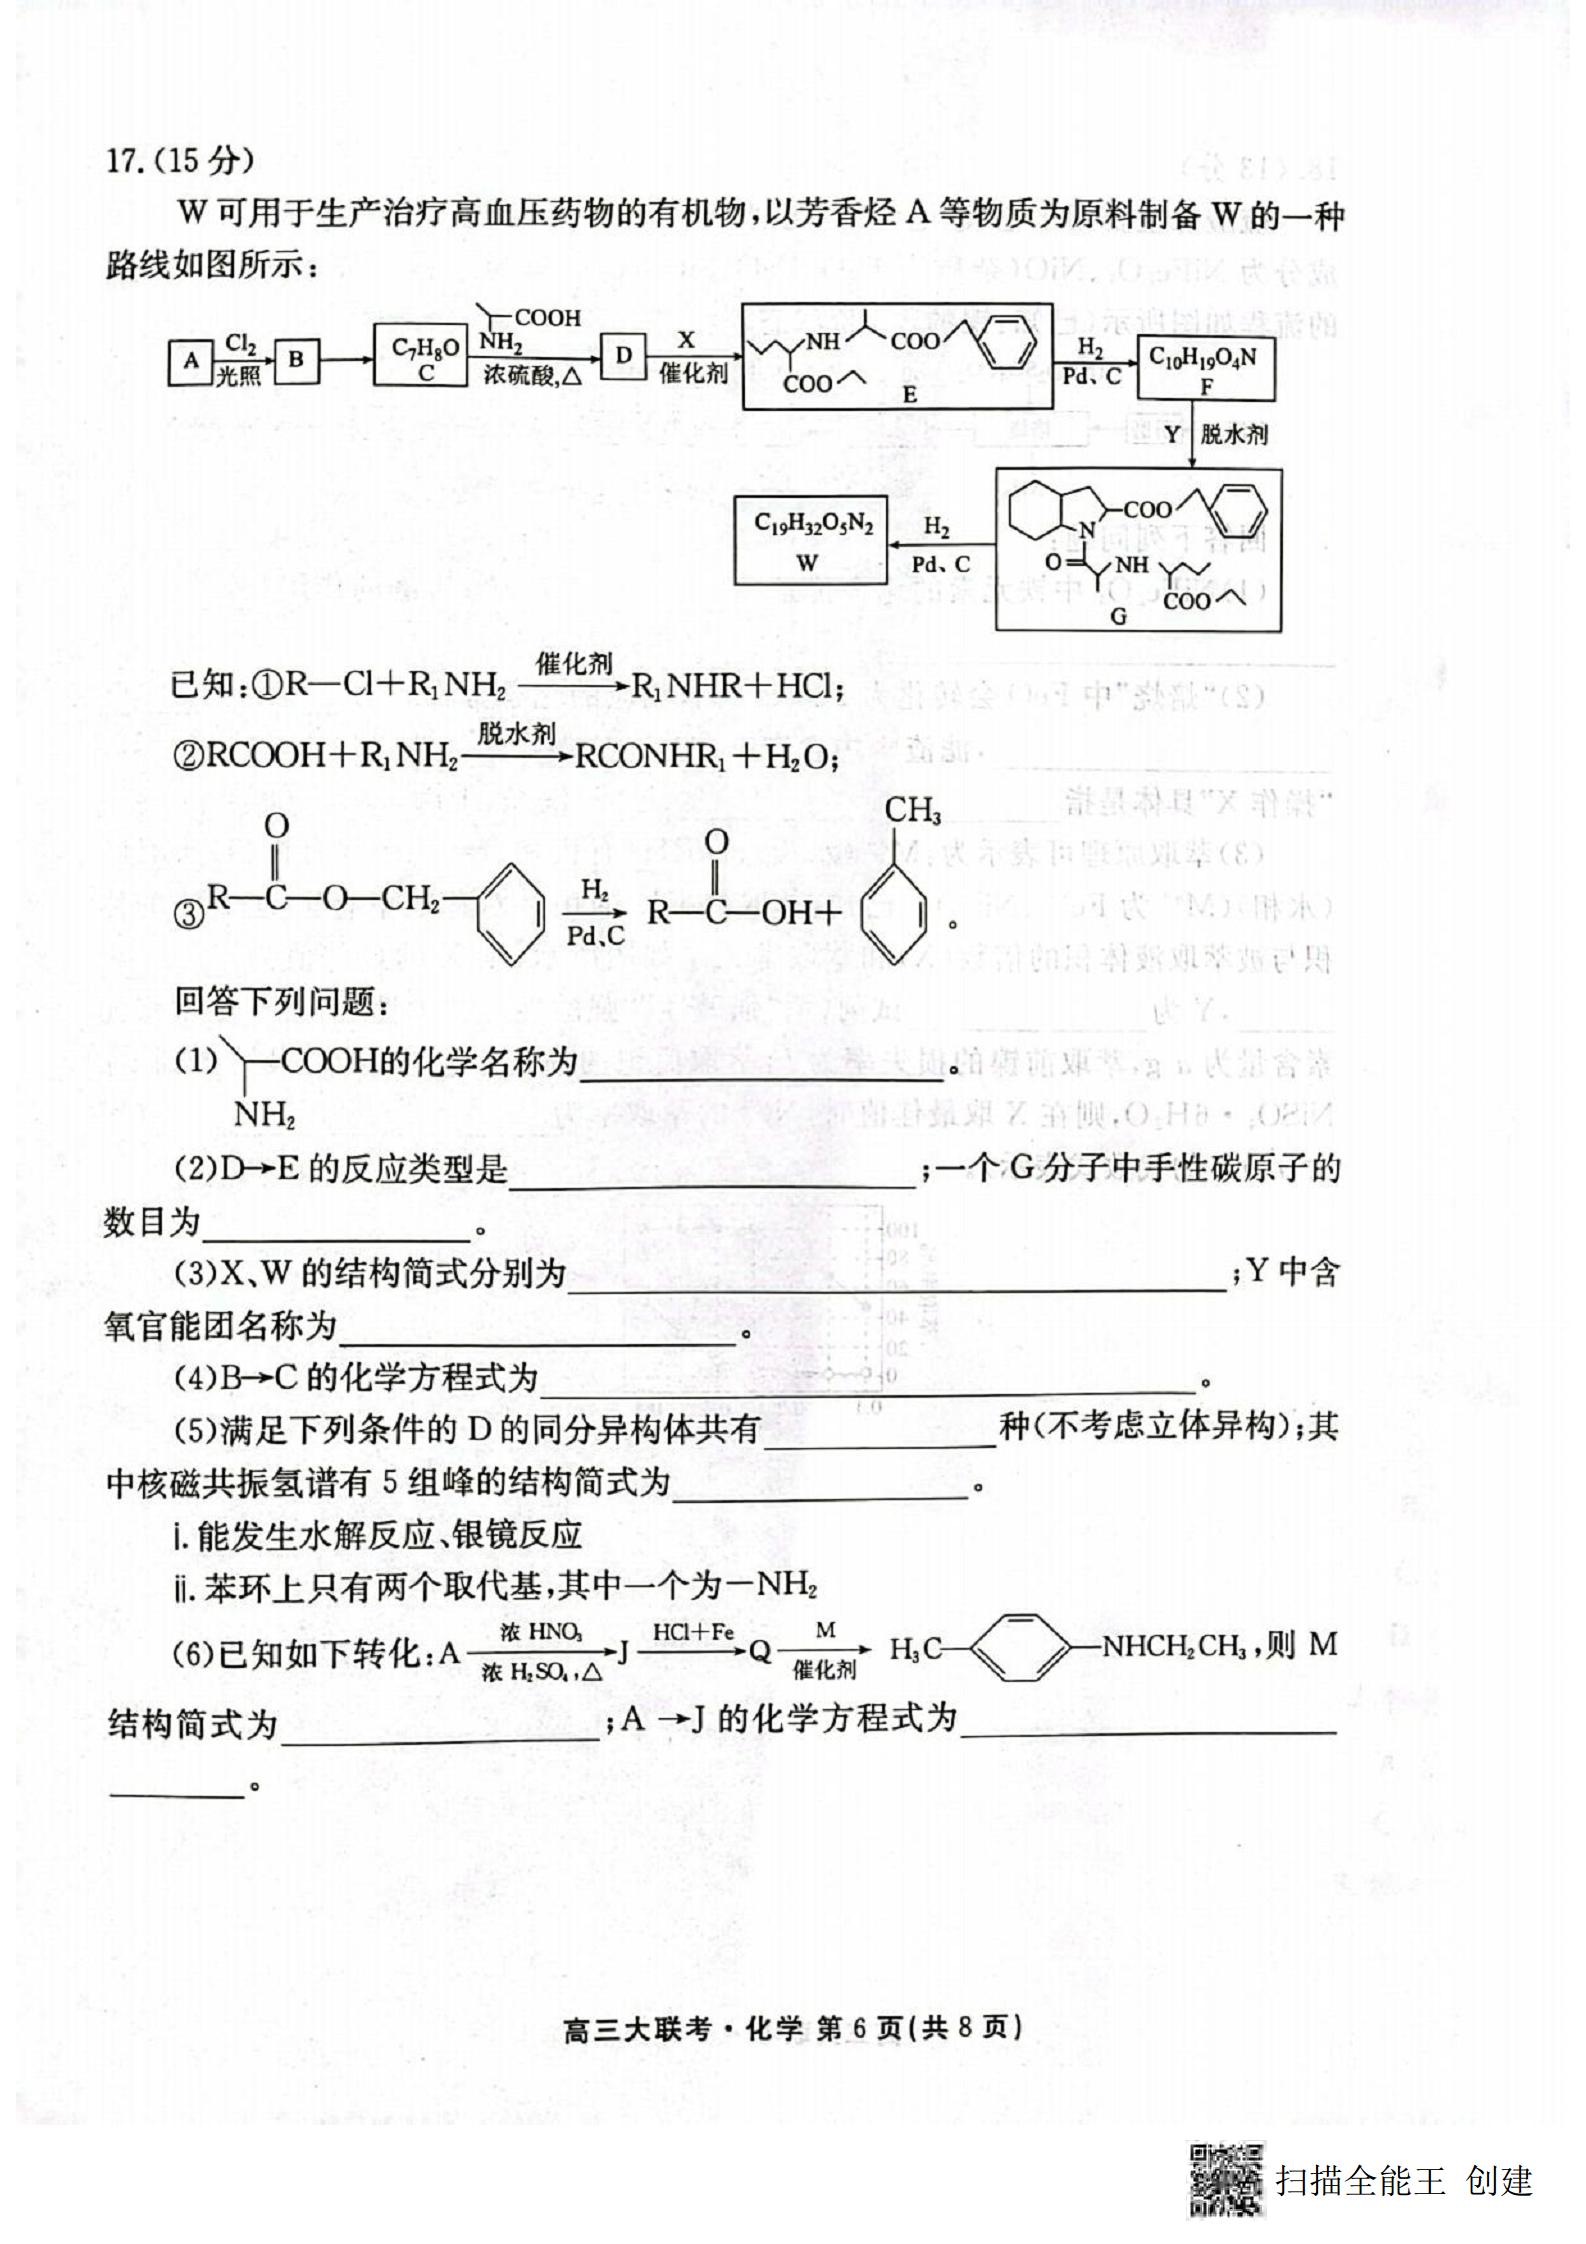 17.(15分)
W可用于生产治疗高血压药物的有机物,以芳香烃A等物质为原料制备W的一种
路线如图所示:
A Cl₂ 光照 B C₇H₈O C COOH NH₂ 浓硫酸,△ D X 催化剂 NH COO COO E H₂ Pd、C C₁₀H₁₉O₄N F
Y 脱水剂
C₁₉H₃₂O₅N₂ W H₂ Pd、C COO N O NH COO G
已知:①R—Cl+R₁NH₂ 催化剂 R₁NHR+HCl;
②RCOOH+R₁NH₂ 脱水剂 RCONHR₁+H₂O;
③R—C—O—CH₂ O H₂ Pd、C R—C—OH+ O CH₃ 。
回答下列问题:
(1) COOH的化学名称为 。
NH₂
(2)D→E的反应类型是 ;一个G分子中手性碳原子的
数目为 。
(3)X、W的结构简式分别为 ;Y中含
氧官能团名称为 。
(4)B→C的化学方程式为 。
(5)满足下列条件的D的同分异构体共有 种(不考虑立体异构);其
中核磁共振氢谱有5组峰的结构简式为 。
ⅰ.能发生水解反应、银镜反应
ⅱ.苯环上只有两个取代基,其中一个为—NH₂
(6)已知如下转化:A 浓HNO₃ 浓H₂SO₄,△ J HCl+Fe Q M 催化剂 H₃C— —NHCH₂CH₃,则M
结构简式为 ;A→J的化学方程式为
。
高三大联考·化学 第6页(共8页)
扫描全能王 创建